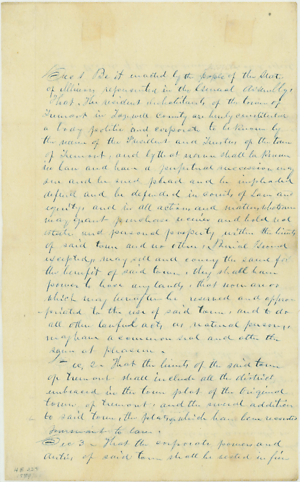 Sec 1 Be it enacted by the people of the State
of Illinois represented in the General Assembly
That the resident inhabitants of the town of
Tremont in Tazewell county are hereby constituted
a body politic and corporate to be known by
the name of the President and Trustees of the town
of Tremont, and by that name shall be known
in law and have a perpetual succession may
sue and be sued plead and be impleaded
defend and be defended in courts of law and
equity and in all actions and matters whatsoever
may grant purchase receive and hold real
estate and personal property within the limits
of said town and no other (burial Ground
excepted) may sell and convey the same for
the benefit of said town, they shall have
power to lease any lands, that now are or
which may hereafter be reserved and appro-
priated to the use of said town, and to do
all other lawful acts as natural persons,
may have a common seal and alter the
same at pleasure.
Sec. 2. That the limits of the said town
of Tremont shall include all the district
embraced in the town plat of the Original
town of Tremont and the several addition
to said town, the plats of which have been recorded
pursuant to law.
Sec 3. That the corporate powers and
duties of said town shall be vested in five